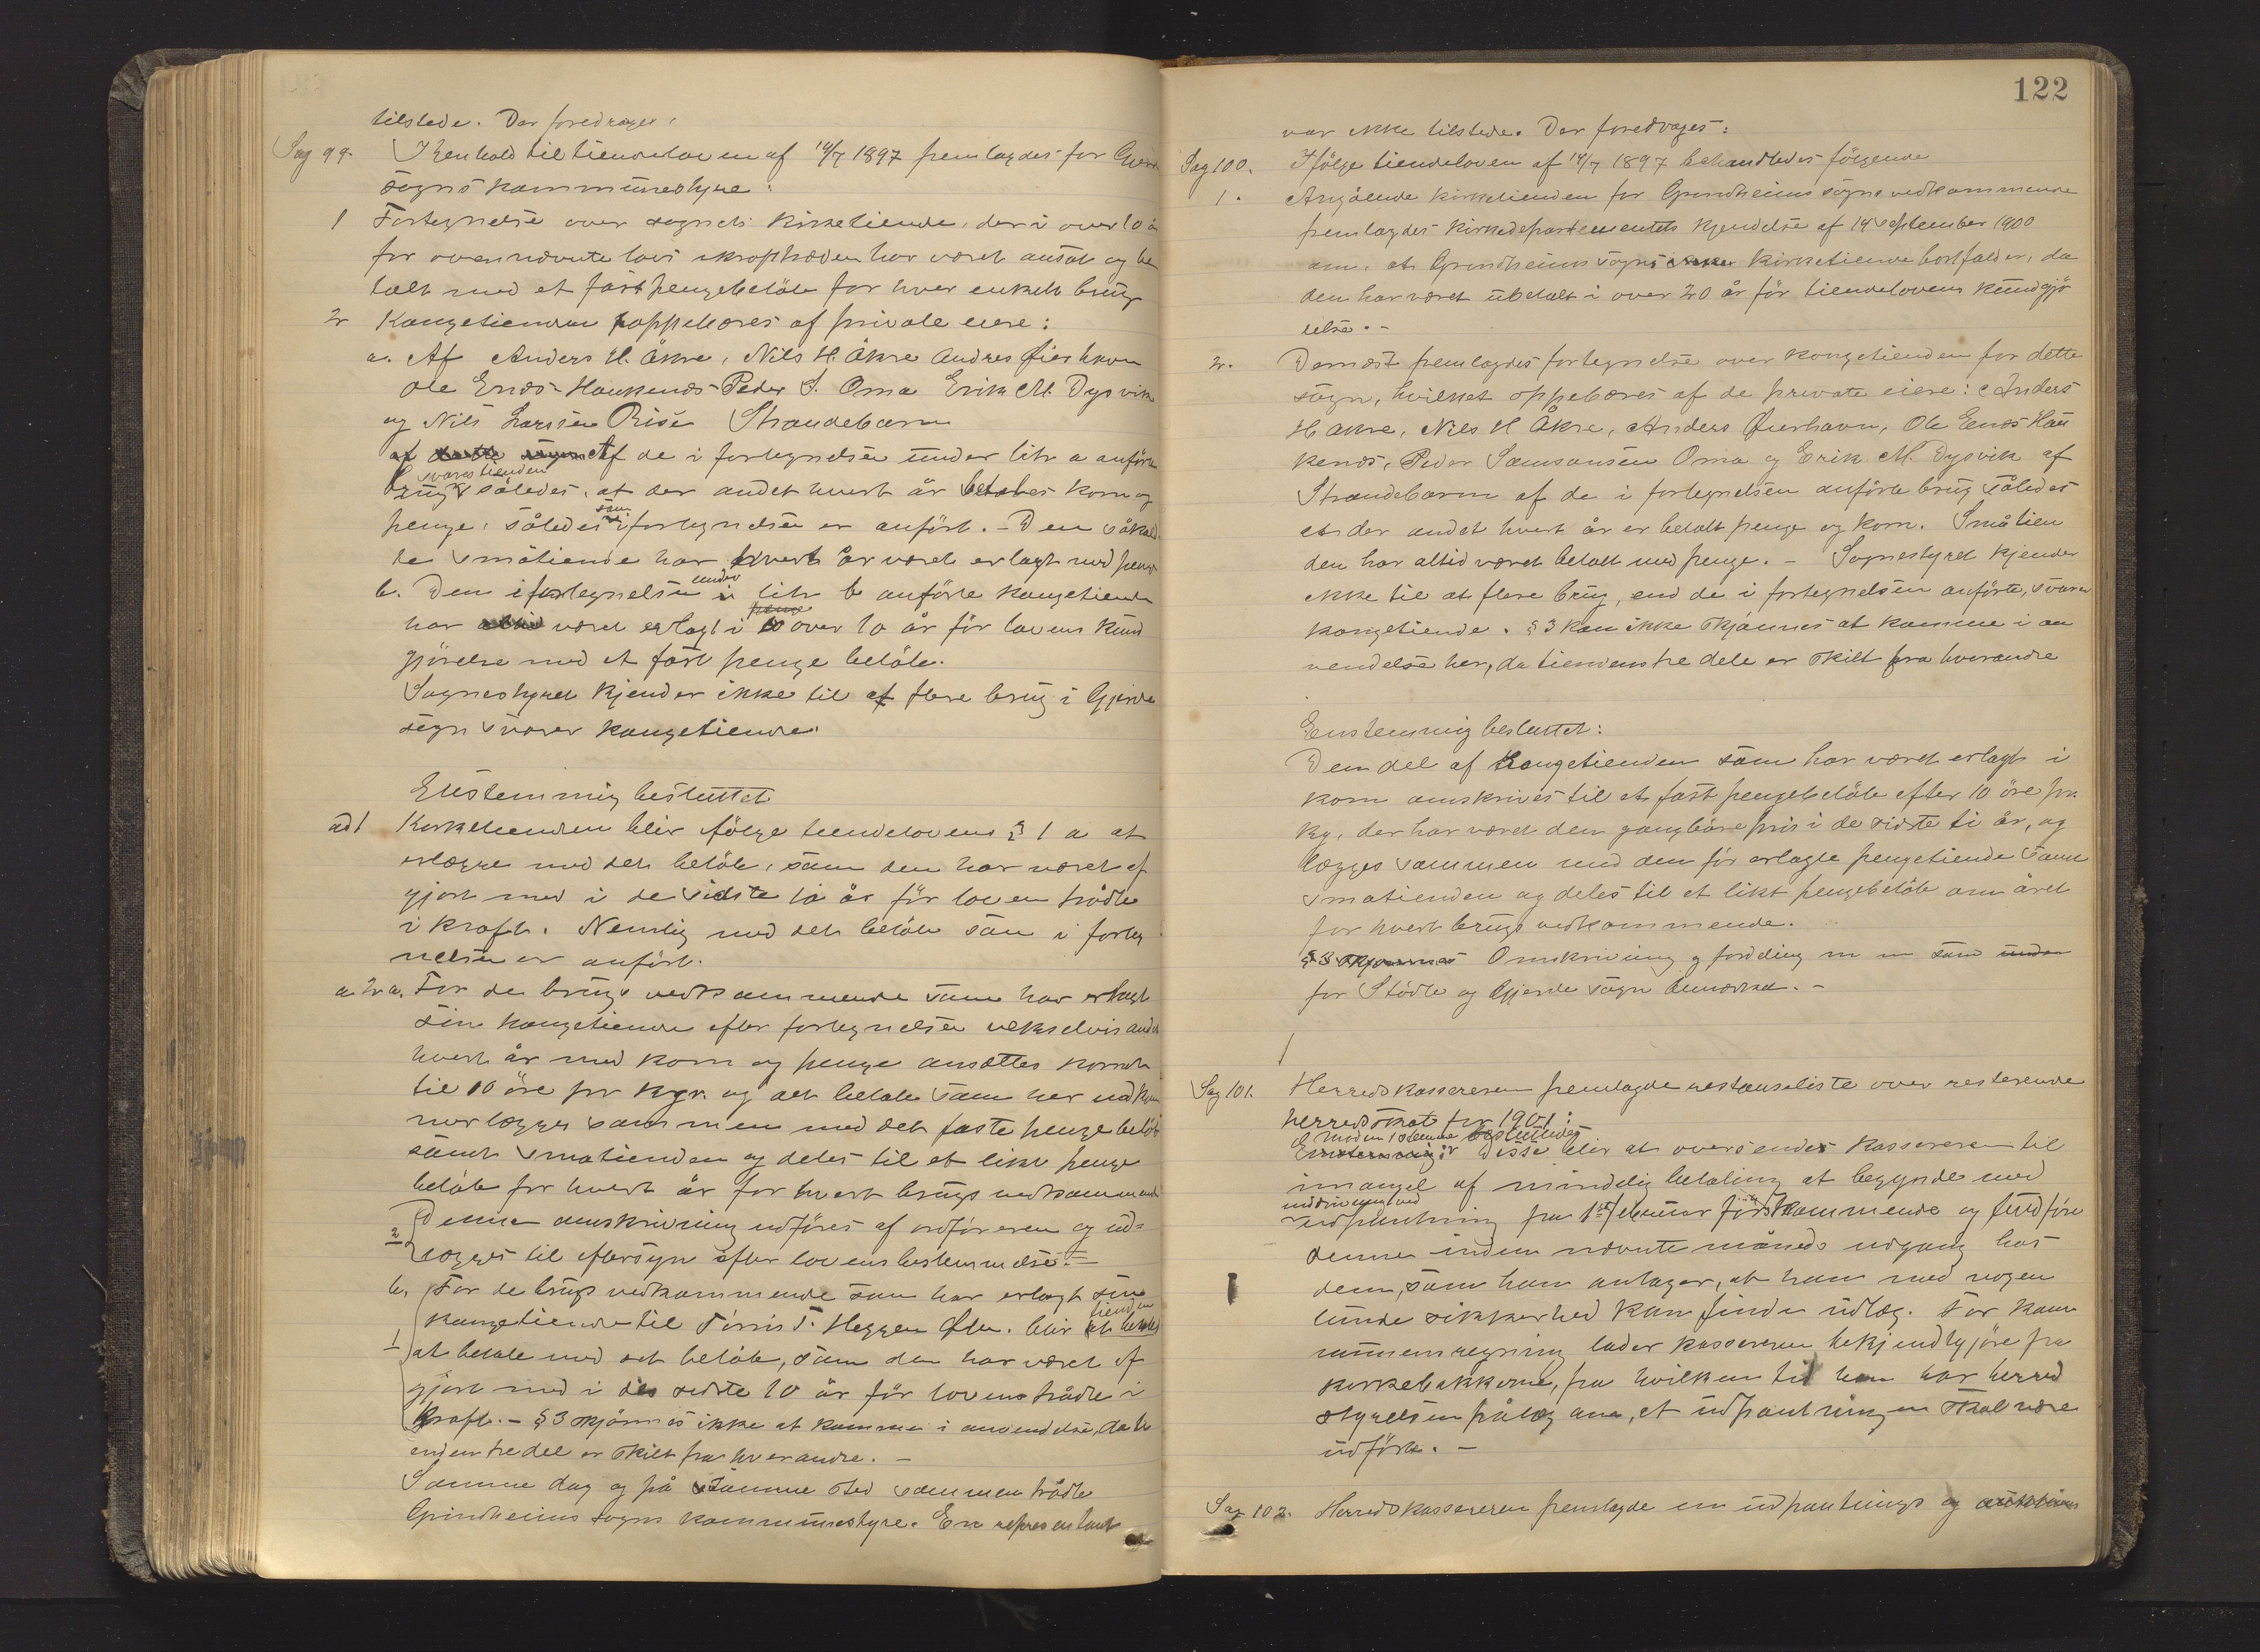 tilstede. Der foredrages:
Sag 99. I henhold til tiendeloven af 14/7 1897 fremlagdes for Gjerde
sogns kommunestyre:
1 Fortegnelse over sognets kirketiende, der i over 10 år
før ovennævnte lovs ikrafttræden har været ansat og be
talt med et fast pengebeløb for hver enkelt brug
2 Kongetienden oppebæres af private eiere:
a. Af Anders H. Åkre, Nils H. Åkre Andres Øierhavn
Ole Enæs-Haukenæs Peder S. Oma Erik M. Dysvik
og Nils Larssen Risé Strandebarm
Af de i fortegnelsen under litr a anførte
svares tienden
brug således, at der andet hvert år betales korn og
som
penge, således i fortegnelsen er anført. - Den såkald
te småtiende har hvert år været erlagt med penge
under
b. Den i fortegnelsen litr b anførte kongetiende
har været erlagt i over 10 år før lovens kund
gjørelse med et fast penge beløb.
Sognestyret kjender ikke til at flere brug i Gjerde
sogn svarer kongetiende.
Enstemmig besluttet
ad 1 Kirketienden blir ifølge tiendelovens § 1 a at
erlægge med det beløb, som den har været af
gjort med i de sidste 10 år før loven trådte
i kraft. Nemlig med det beløb som i forteg
nelsen er anført.
a. 2 a. For de brugs vedkommende som har erlagt
sin kongetiende efter fortegnelsen vekselvis andet
hvert år med korn og penge ansættes kornet
til 10 øre pr kgr. og det beløb som her udkom
mer lægges sammen med det faste penge beløb
samt småtienden og deles til et likt penge
beløb for hvert år for hvert brugs vedkommende
2 Denne omskrivning udføres af ordføreren og ud=
lægges til eftersyn efter lovens bestemmelse. -
b. For de brugs vedkommende som har erlagt sin
tienden
1 kongetiende til Tørris T. Heggen Ølen. blir
at betale med det beløb, som den har været af
gjort med i de sidste 10 år før lovens trådte i
kraft. - § 3 skjønnes ikke at komme i anvendelse, da ti
endens tre del er skilt fra hverandre. -
Samme dag og på samme sted sammentrådte
Grindheims sogns kommunestyre. En representant
122
var ikke tilstede. Der foredrages:
Sag 100. Ifølge tiendeloven af 14/7 1897 behandledes følgende
1. Angående kirketienden for Grindheims sogns vedkommende
fremlagdes kirkedepartementets kjendelse af 14 september 1900
om, at Grindheims sogns kirketiende bortfalder, da
den har været ubetalt i over 20 år før tiendelovens kundgjø
relse. -
2. Dernæst fremlagdes fortegnelse over kongetienden for dette
sogn, hvilket oppebæres af de private eiere: Anders
H Åkre, Nils H Åkre, Anders Øierhavn, Ole Enæs Hau
kenæs, Peder Samsonsen Oma og Erik M. Dysvik af
Strandebarm af de i fortegnelsen anførte brug således
at der andet hvert år er betalt penge og korn. Småtien
den har altid været betalt med penge. - Sognestyret kjender
ikke til at flere brug, end de i fortegnelsen anførte, svarer
kongetiende. § 3 kan ikke skjønnes at komme i an
vendelse her, da tiendens tre dele er skilt fra hverandre
Enstemmig besluttet:
Den del af kongetienden som har været erlagt i
korn omskrives til et fast pengebeløb efter 10 øre pr.
kg, der har været den gangbare pris i de sidste ti år, og
lægges sammen med den før erlagte pengetiende samt
småtienden og deles til et likt pengebeløb om året
for hvert brugs vedkommende.
Omskrivning og fordeling m m som
for Stødle og Gjerde sogn bemærket. -
Sag 101. Herredskassereren fremlagde restanseliste over resterende
herredsskat for 1901:
Mod en stemme besluttedes
Disse blir at oversende kassereren til
mangel af mindelig betaling at begynde med
inddrivning ved
udpantning fra 1ste februar førstkommende og fuldføre
denne inden nævnte måneds udgang hos
dem, som han antager, at han med nogen
lunde sikkerhed kan finde udlæg. For kom
munens regning lader kassereren bekjendtgjøre fra
kirkebakkerne, fra hvilken tid han har herred
styrelsens pålæg om, at udpantningen skal være
udført. -
Sag 102. Herredskassereren fremlagde en udpantnings og auktions